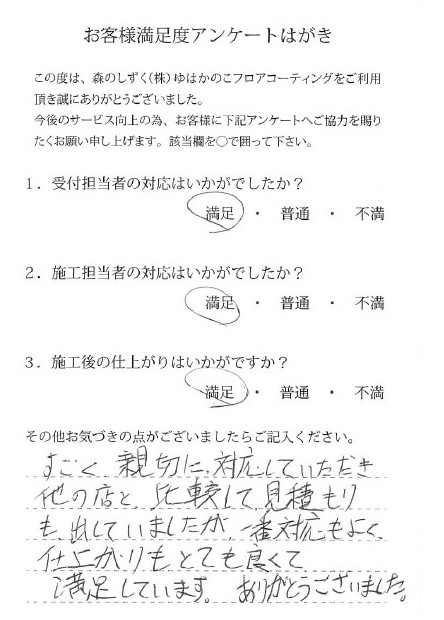 お客様満足度アンケートはがき
この度は、森のしずく(株)ゆはかのこフロアコーティングをご利用
頂き誠にありがとうございました。
今後のサービス向上の為、お客様に下記アンケートへご協力を賜り
たくお願い申し上げます。該当欄を○で囲って下さい。
1．受付担当者の対応はいかがでしたか？
満足 ・ 普通 ・ 不満
2．施工担当者の対応はいかがでしたか？
満足 ・ 普通 ・ 不満
3．施工後の仕上がりはいかがですか？
満足 ・ 普通 ・ 不満
その他お気づきの点がございましたらご記入ください。
すごく、親切に、対応していただき
他の店と、比較して、見積もり
も、出していましたが、一番対応もよく、
仕上がりもとても良くて
満足しています。ありがとうございました。